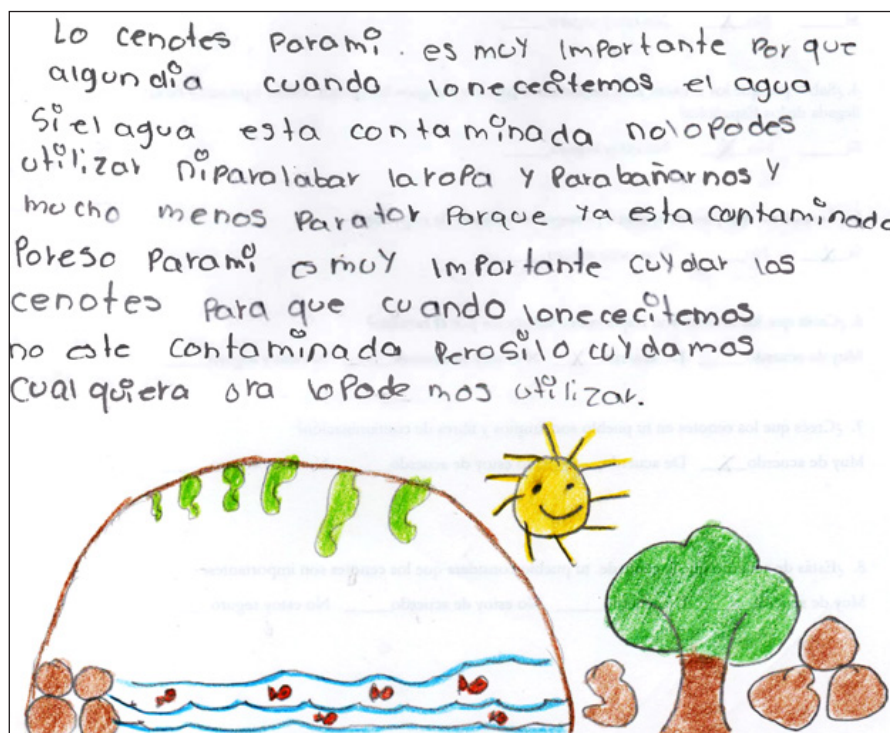 Lo cenotes Parami. es muy importante Por que
algun dia cuando lonecesitemos el agua
Si el agua esta contaminada nolopodes
utilizar niparalabar laropa y Parabañarnos y
mucho menos Parator Porque ya esta contaminada
Poreso Parami es muy importante cuydar las
cenotes Para que cuando lonececitemos
no este contaminada Perosilo cuydamos
cualquiera ora loPodemos utilizar.